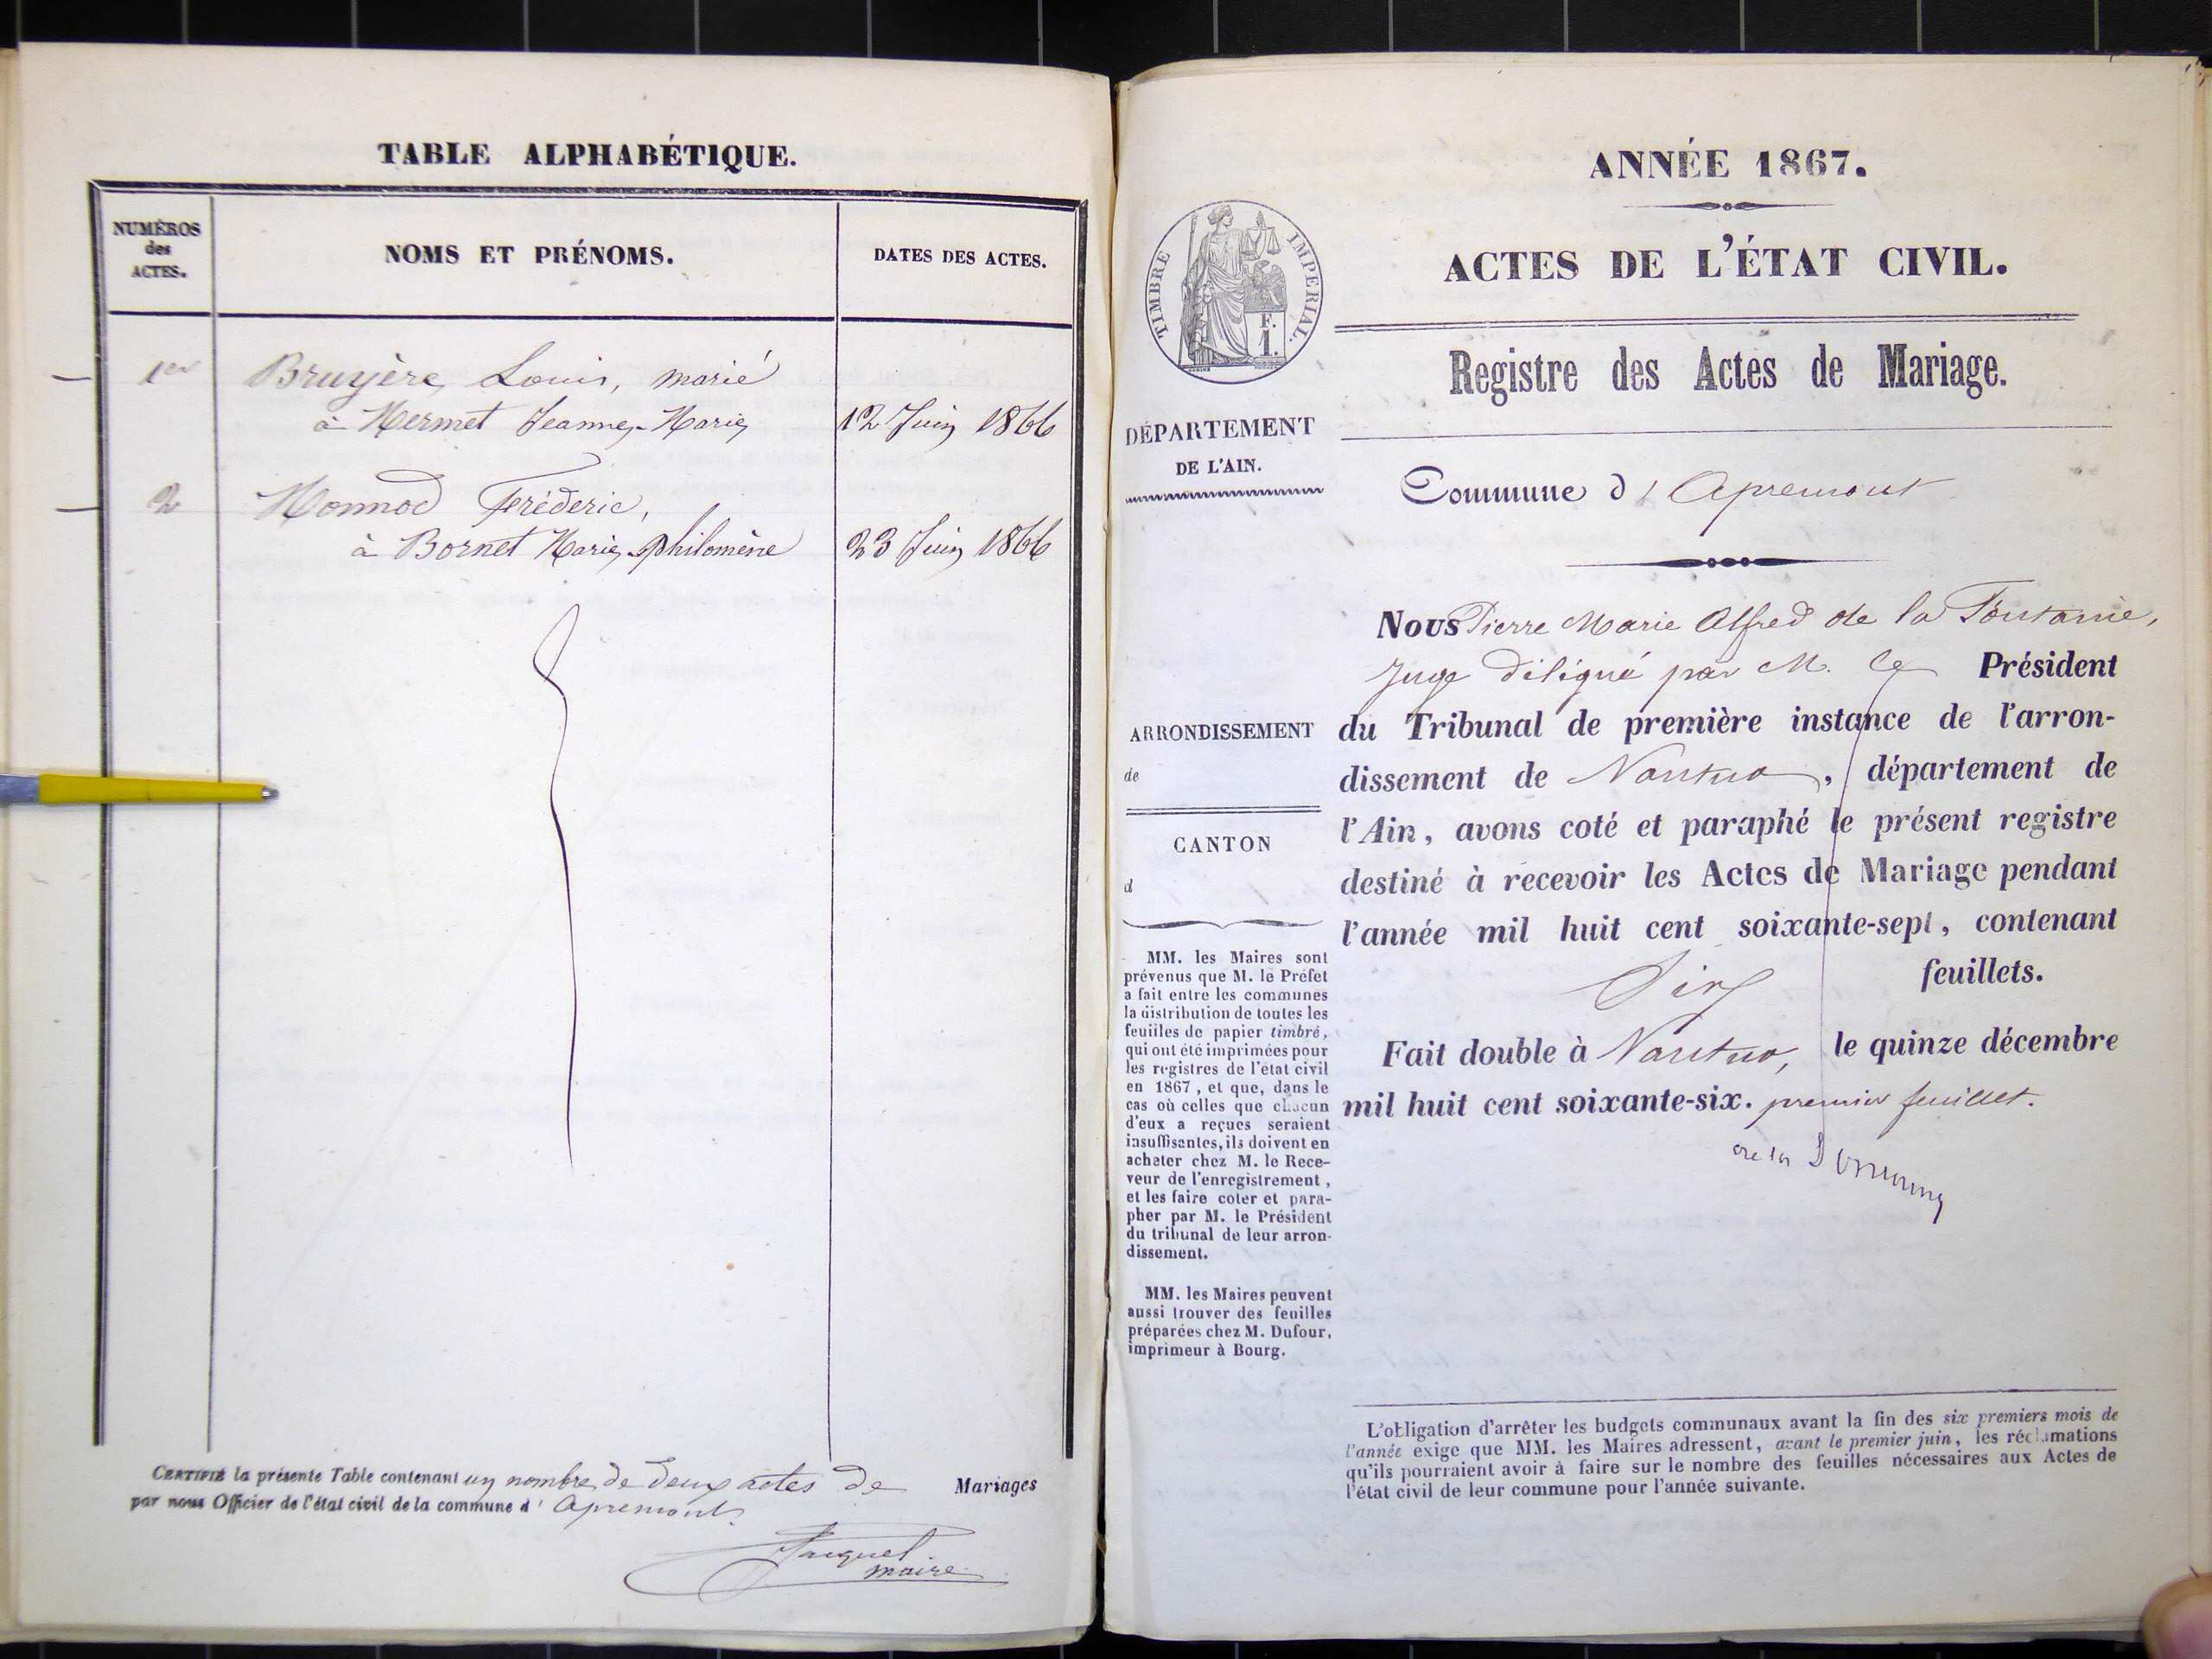 TABLE ALPHABÉTIQUE.
NUMÉROS
des
ACTES.
NOMS ET PRÉNOMS.
DATES DES ACTES.
1er Bruyère, Louis, marié
à Hermet Jeanne-Marie 12 Juin 1866
2 Monnod Fréderic,
à Bornet Marie-philomène 23 Juin 1866
CERTIFIÉ la présente Table contenant un nombre de deux actes de Mariages
par nous Officier de l'état civil de la commune d' Apremont.
maire
ANNÉE 1867.
ACTES DE L'ÉTAT CIVIL.
TIMBRE IMPERIAL.
F.
1.
Registre des Actes de Mariage.
DÉPARTEMENT
DE L'AIN.
Commune d' Apremont
Nous Pierre Marie Alfred de la
Juge délégué par M. le Président
ARRONDISSEMENT
de
du Tribunal de première instance de l'arron-
dissement de Nantua, département de
l'Ain, avons coté et paraphé le présent registre
destiné à recevoir les Actes de Mariage pendant
l'année mil huit cent soixante-sept, contenant
Six feuillets.
Fait double à Nantua, le quinze décembre
mil huit cent soixante-six. premier feuillet.
de la
CANTON
d
MM. les Maires sont
prévenus que M. le Préfet
a fait entre les communes
la distribution de toutes les
feuilles de papier timbré,
qui ont été imprimées pour
les registres de l'état civil
en 1867, et que, dans le
cas où celles que chacun
d'eux a reçues seraient
insuffisantes, ils doivent en
acheter chez M. le Rece-
veur de l'enregistrement,
et les faire coter et para-
pher par M. le Président
du tribunal de leur arron-
dissement.
MM. les Maires peuvent
aussi trouver des feuilles
préparées chez M. Dufour,
imprimeur à Bourg.
L'obligation d'arrêter les budgets communaux avant la fin des six premiers mois de
l'année exige que MM. les Maires adressent, avant le premier juin, les réclamations
qu'ils pourraient avoir à faire sur le nombre des feuilles nécessaires aux Actes de
l'état civil de leur commune pour l'année suivante.